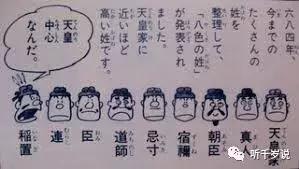 六八四年、
今までの
たくさんの
姓を
整理して、
「八色の姓」
が発表され
ました。
天皇家に
近いほど
高い姓です。
天皇
中心
なんだ。
天皇家
真人
朝臣
宿禰
忌寸
道師
臣
連
稲置
听千岁说